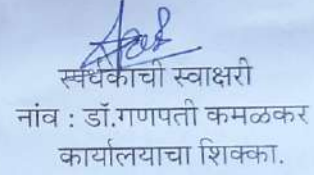 स्पर्धकाची स्वाक्षरी
नांव : डॉ.गणपती कमळकर
कार्यालयाचा शिक्का.